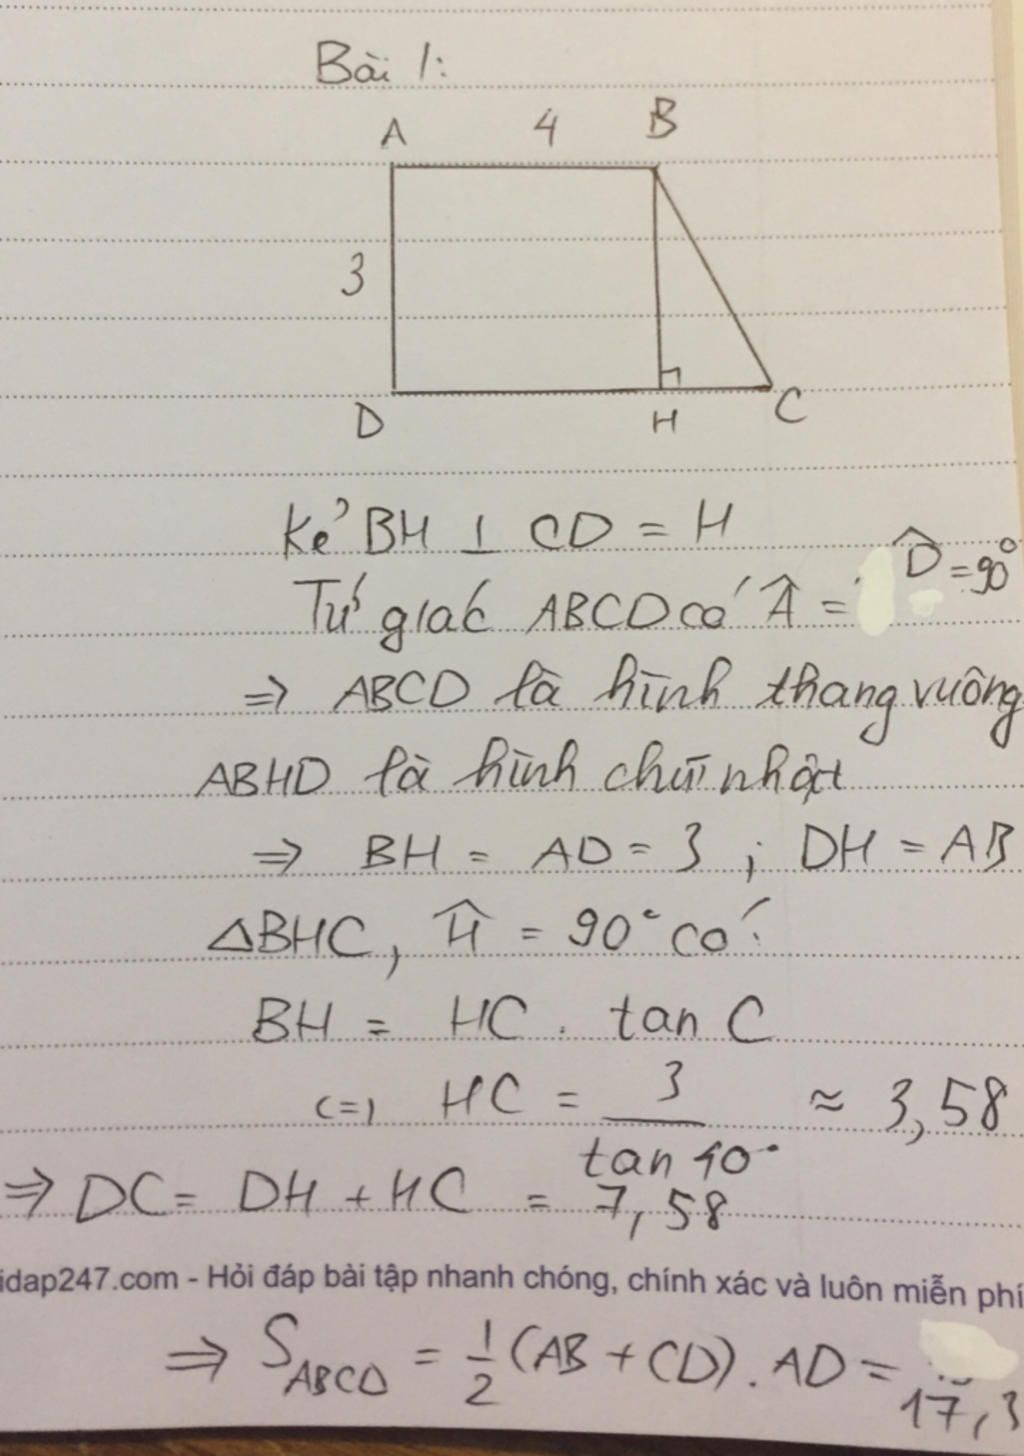 Bài 1:
A 4 B
3
D H C
Kẻ BH ⊥ CD = H
Tứ giác ABCD có Â = D̂ = 90°
=> ABCD là hình thang vuông
ABHD là hình chữ nhật
=> BH = AD = 3 ; DH = AB
ΔBHC, Ĥ = 90° có:
BH = HC . tan C
(=) HC = 3 / tan 40° ≈ 3,58
=> DC = DH + HC = 7,58
idap247.com - Hỏi đáp bài tập nhanh chóng, chính xác và luôn miễn phí
=> S ABCD = 1/2 (AB + CD) . AD = 17,3